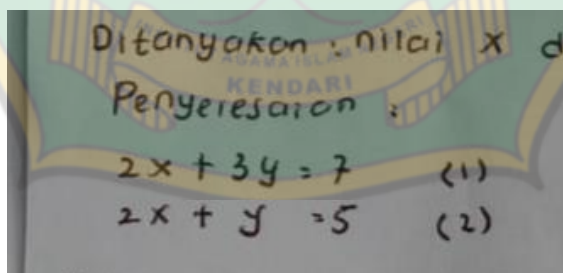 Ditanyakan : nilai x d
AGAMA ISLAM
KENDARI
Penyelesaian :
2x + 3y = 7 (1)
2x + y = 5 (2)